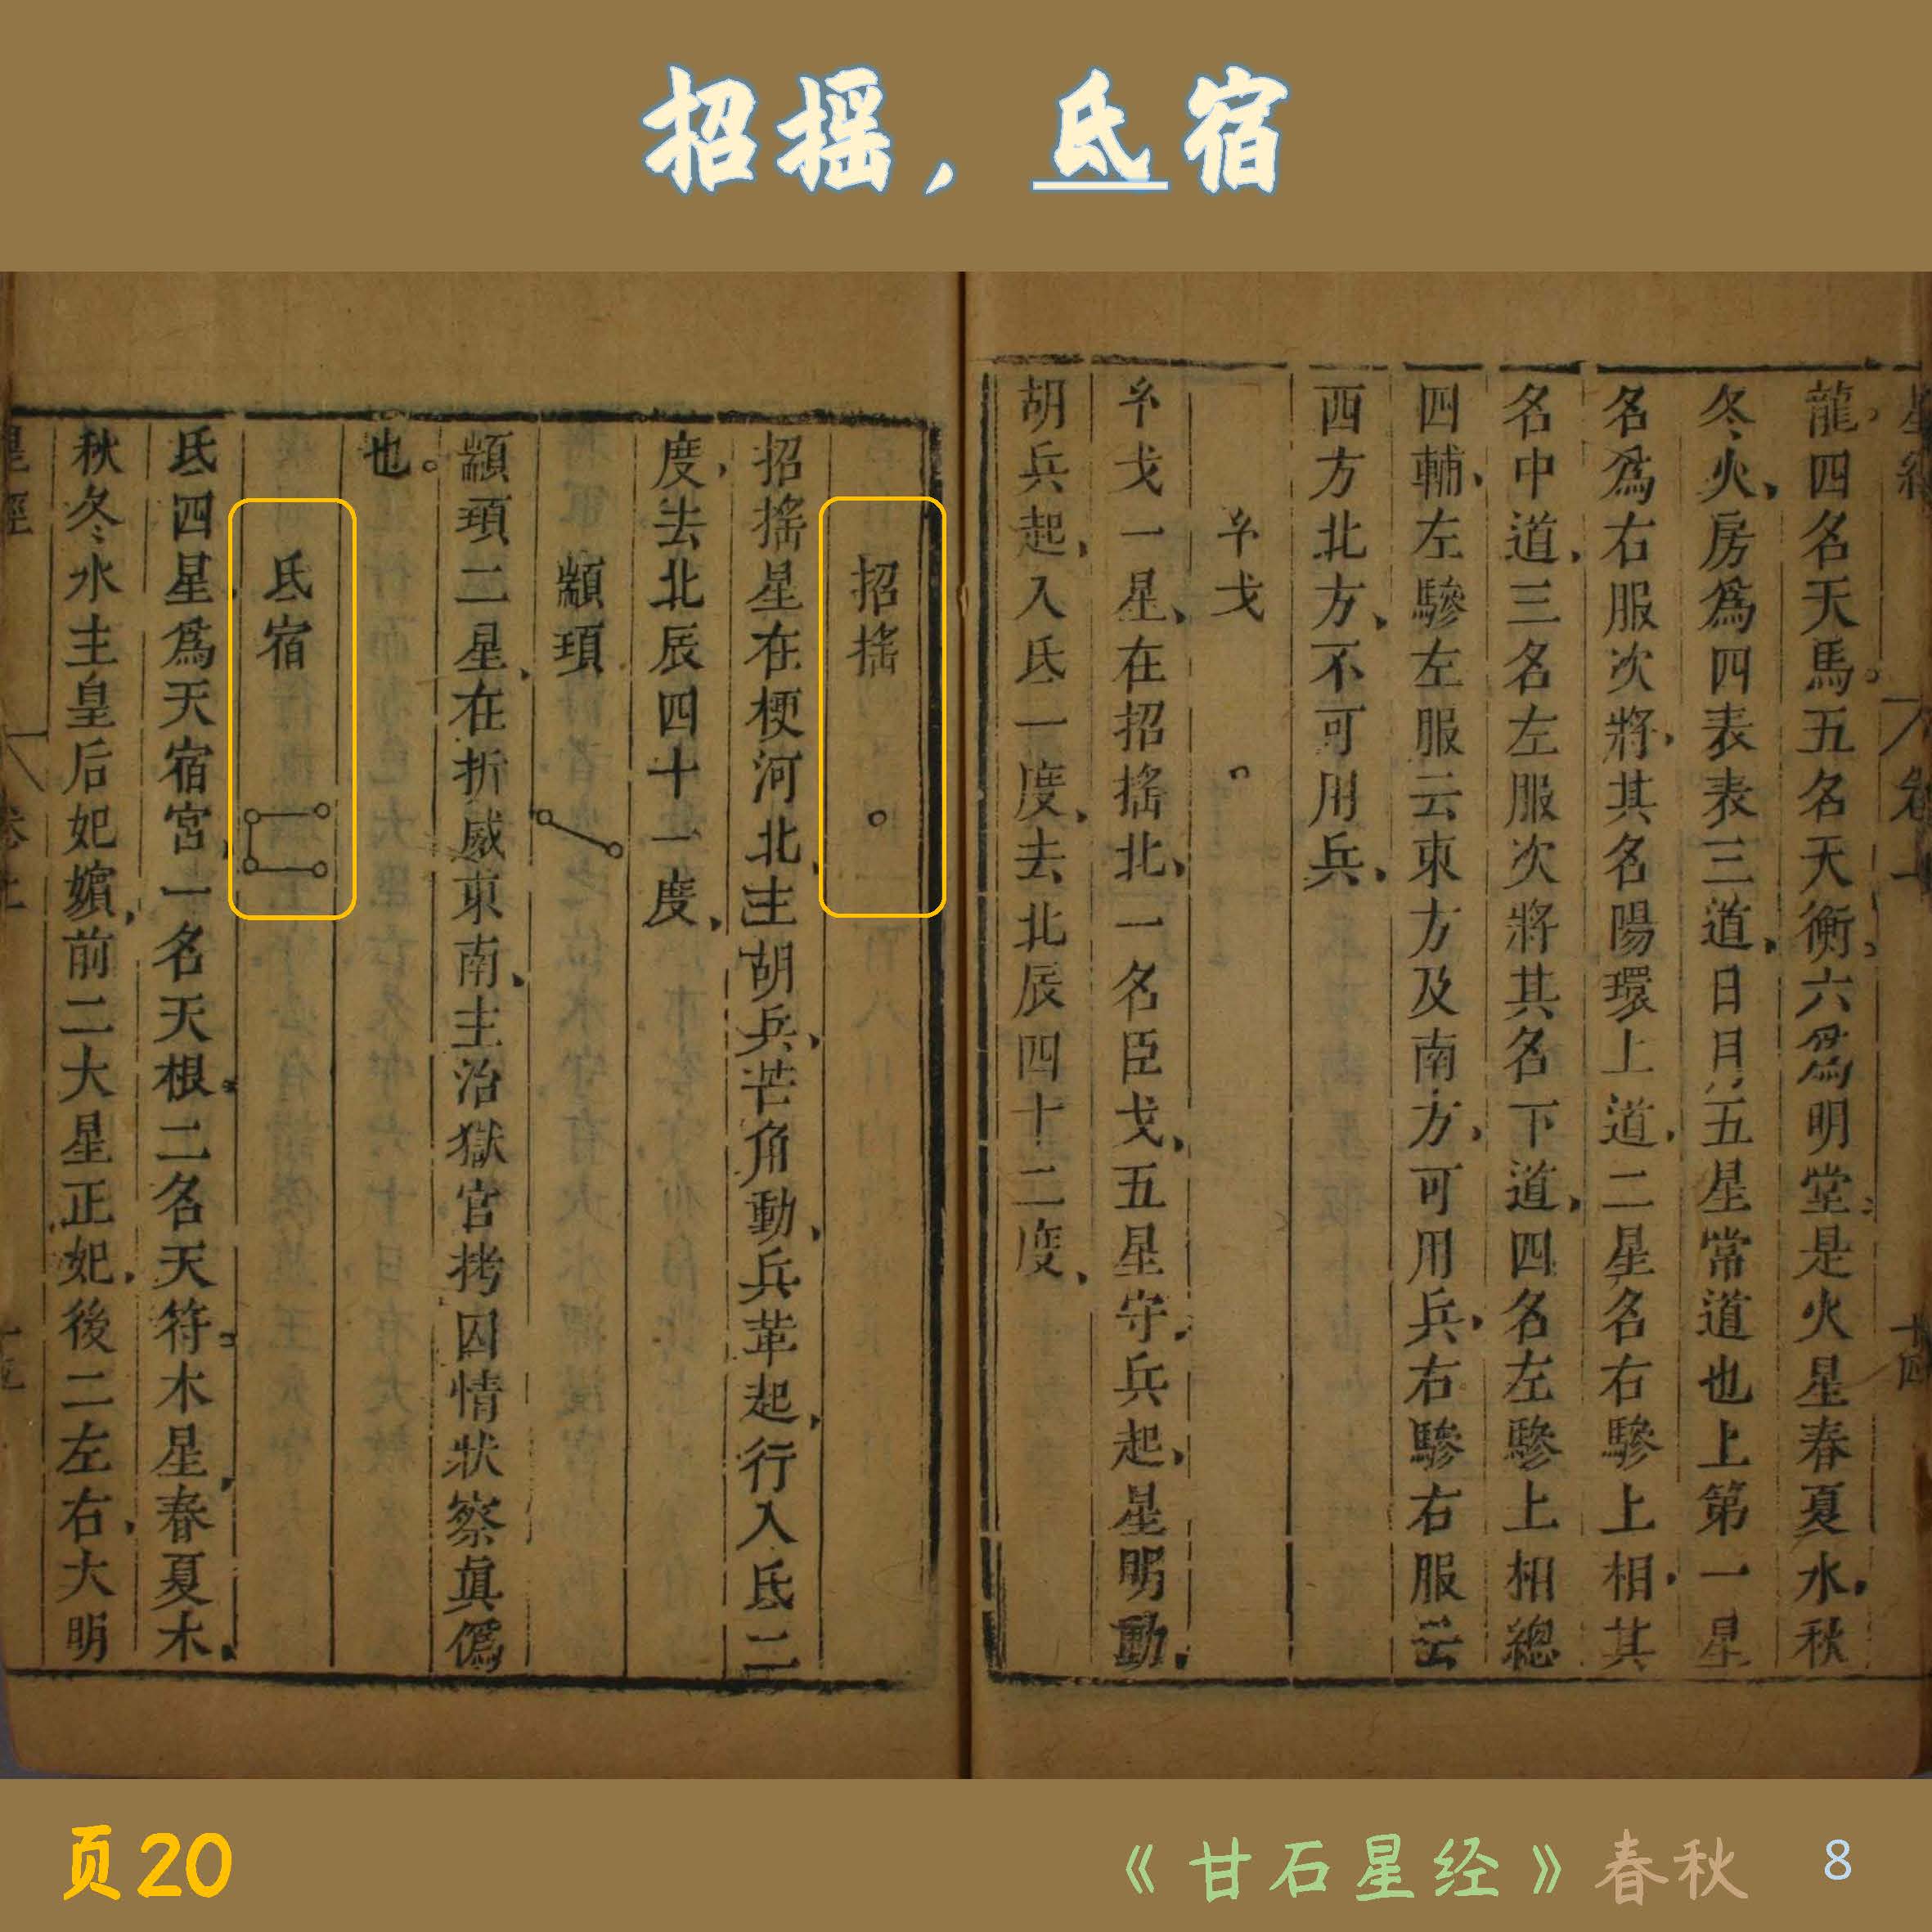 招摇，氐宿
龍四名天馬五名天衡六爲明堂是火星春夏水秋
冬火房爲四表表三道日月五星常道也上第一星
名爲右服次將其名陽環上道二星名右驂上相其
名中道三名左服次將其名下道四名左驂上相總
四輔左驂左服云東方及南方可用兵右驂右服云
西方北方不可用兵
戈
戈一星在招搖北一名臣戈五星守兵起星明動
胡兵起入氐一度去北辰四十二度
招搖
招搖星在梗河北主胡兵芒角動兵革起行入氐二
度去北辰四十一度
顓頊
顓頊二星在折威東南主治獄官拷囚情狀察眞僞
也。
氐宿
氐四星爲天宿宮一名天根二名天符木星春夏木
秋冬水主皇后妃嬪前二大星正妃後二左右大明
星經
卷上
页20
《甘石星经》春秋
8